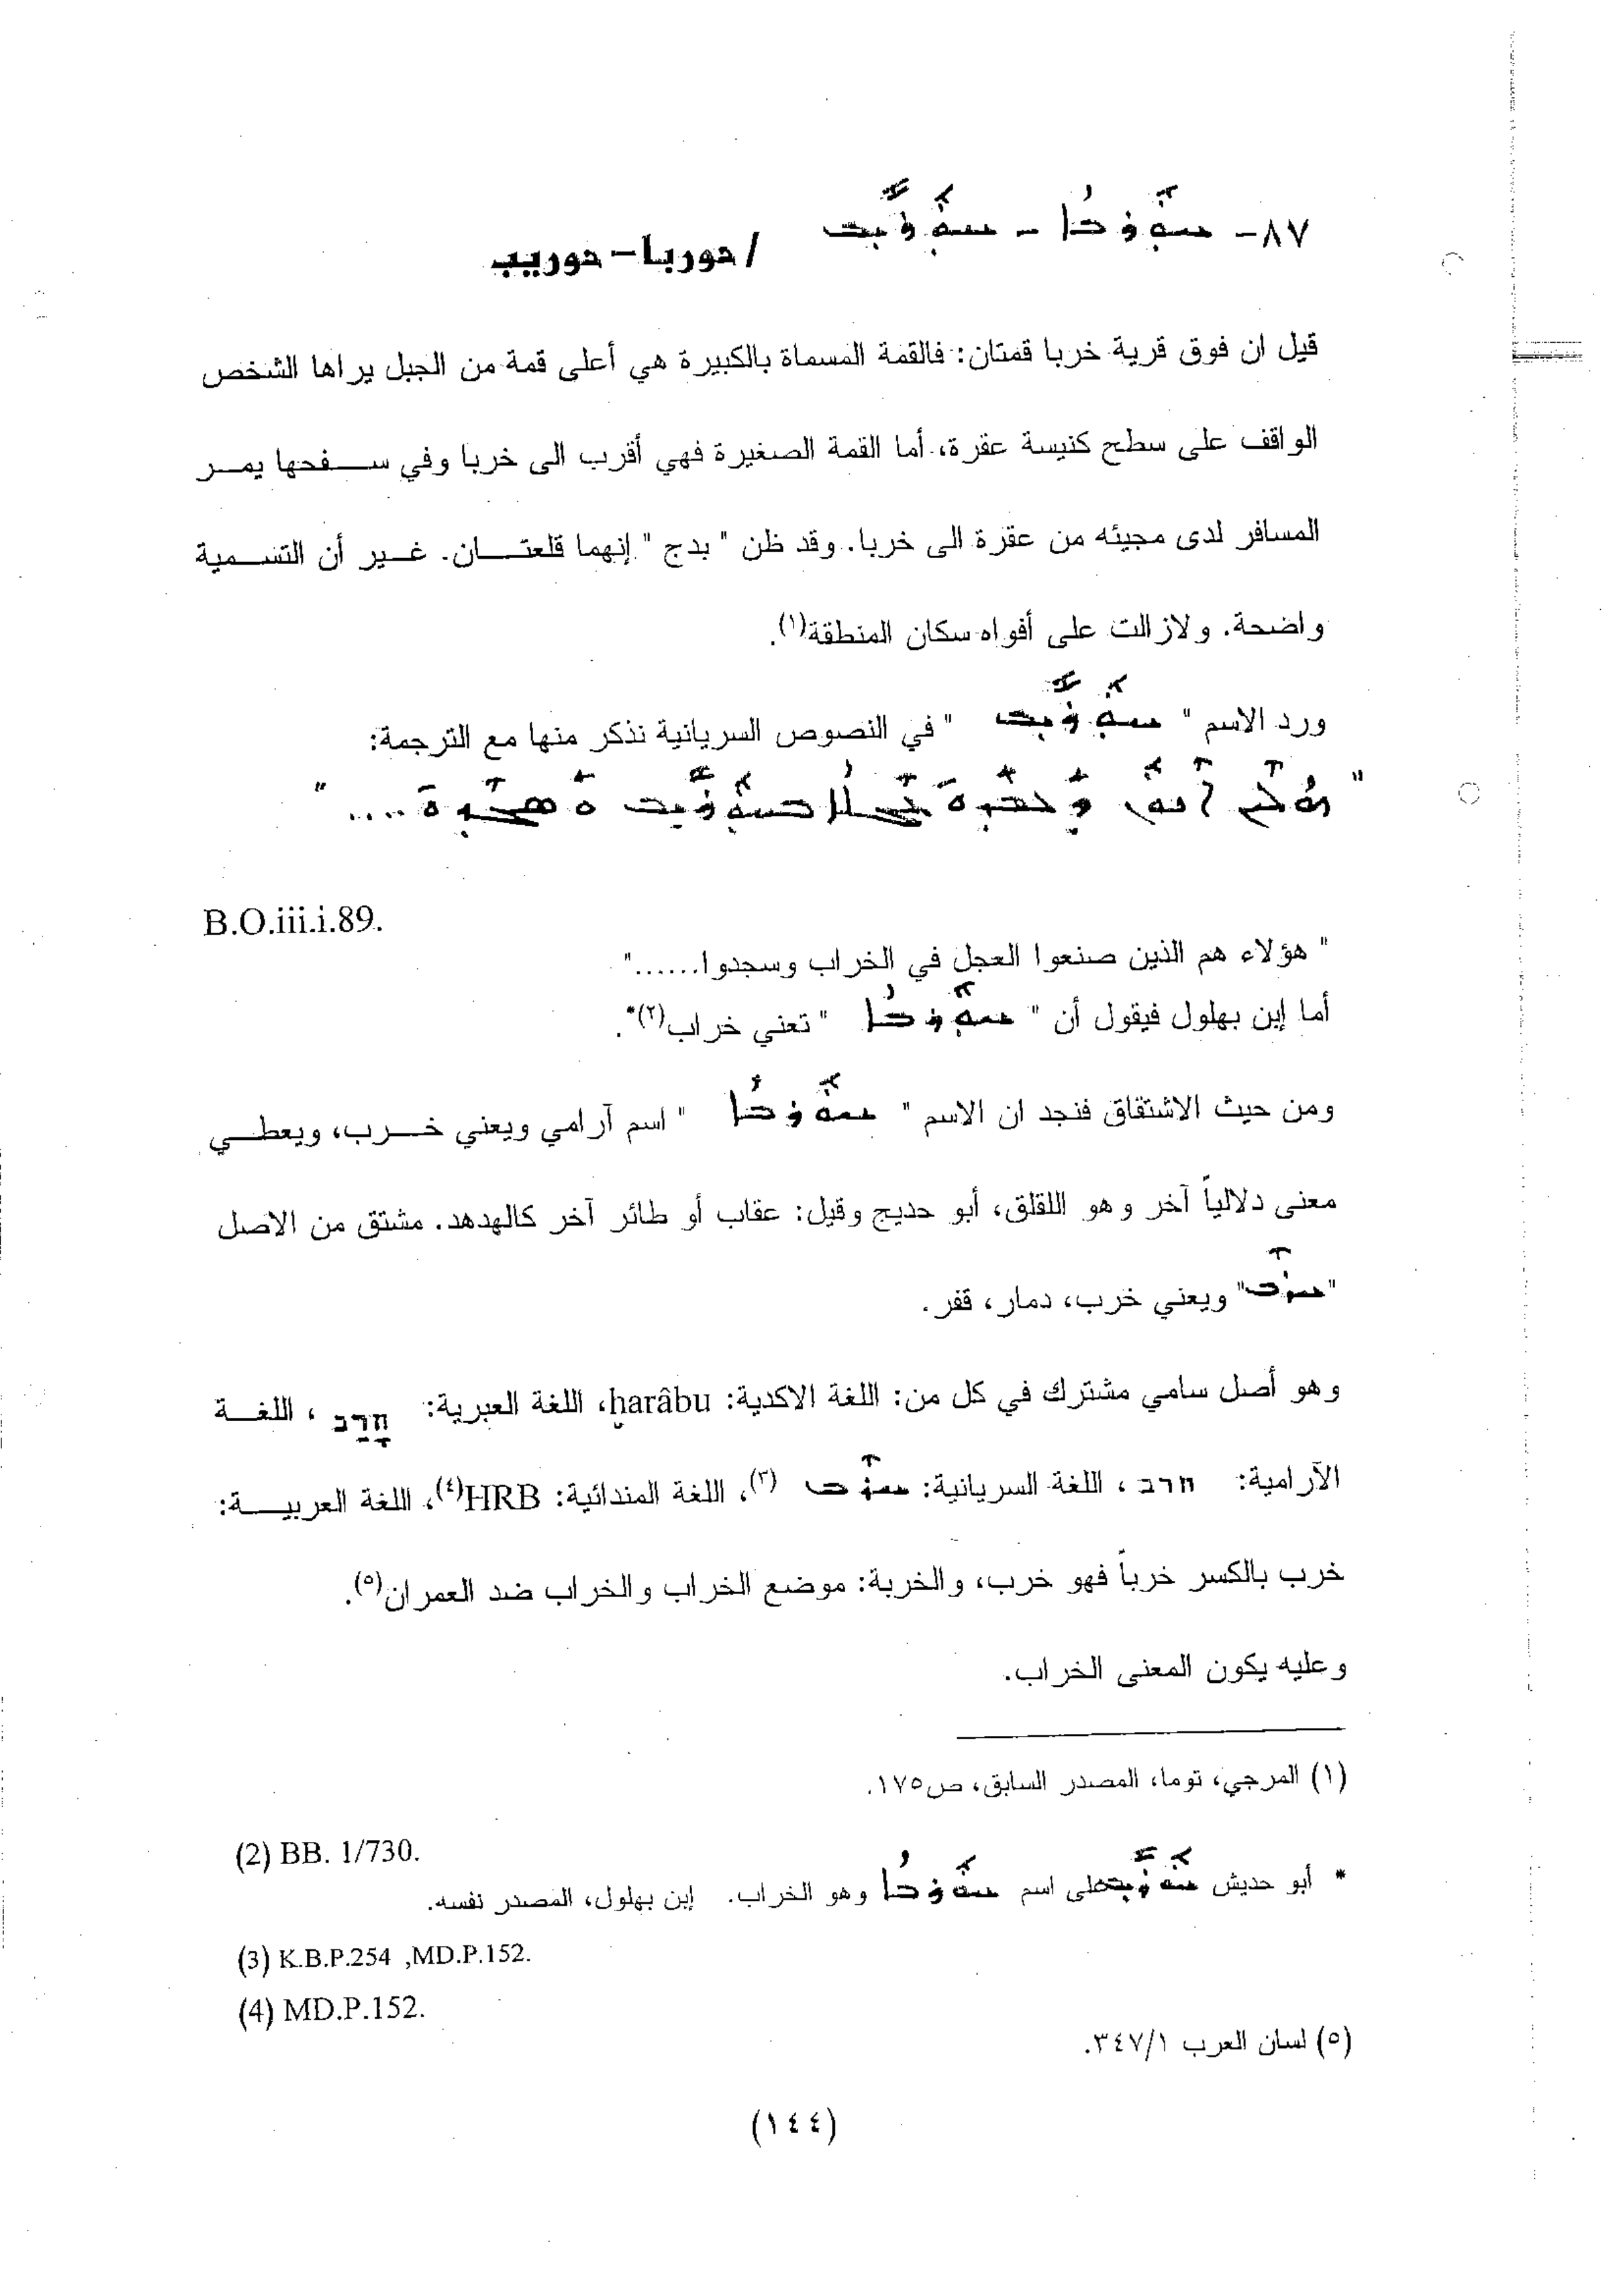 ٨٧- ܚܘܪܒܐ - ܚܘܪܝܒ / حوربا - حوريب
قيل ان فوق قرية خربا قمتان: فالقمة المسماة بالكبيرة هي أعلى قمة من الجبل يراها الشخص
الواقف على سطح كنيسة عقرة، أما القمة الصغيرة فهي أقرب الى خربا وفي سفحها يمر
المسافر لدى مجيئه من عقرة الى خربا. وقد ظن " بدج " إنهما قلعتان. غير أن التسمية
واضحة. ولازالت على أفواه سكان المنطقة(١).
ورد الاسم " ܚܘܪܝܒ " في النصوص السريانية نذكر منها مع الترجمة:
" ܗܠܝܢ ܐܢܘܢ ܕܥܒܕܘ ܥܓܠܐ ܒܚܘܪܝܒ ܘܣܓܕܘ .... "
B.O.iii.i.89.
" هؤلاء هم الذين صنعوا العجل في الخراب وسجدوا......"
أما إبن بهلول فيقول أن " ܚܘܪܒܐ " تعني خراب(٢)*.
ومن حيث الاشتقاق فنجد ان الاسم " ܚܘܪܒܐ " اسم آرامي ويعني خرب، ويعطي
معنى دلالياً آخر وهو اللقلق، أبو حديج وقيل: عقاب أو طائر آخر كالهدهد. مشتق من الاصل
"ܚܪܒ" ويعني خرب، دمار، قفر.
وهو أصل سامي مشترك في كل من: اللغة الاكدية: ḫarâbu، اللغة العبرية: חָרַב ، اللغة
الآرامية: חרב ، اللغة السريانية: ܚܪܒ (٣)، اللغة المندائية: HRB(٤)، اللغة العربية:
خرب بالكسر خرباً فهو خرب، والخربة: موضع الخراب والخراب ضد العمران(٥).
وعليه يكون المعنى الخراب.
(١) المرجي، توما، المصدر السابق، ص١٧٥.
(2) BB. 1/730.
* أبو حديش ܚܘܪܝܒ على اسم ܚܘܪܒܐ وهو الخراب. إبن بهلول، المصدر نفسه.
(3) K.B.P.254 ,MD.P.152.
(4) MD.P.152.
(٥) لسان العرب ٣٤٧/١.
(١٤٤)